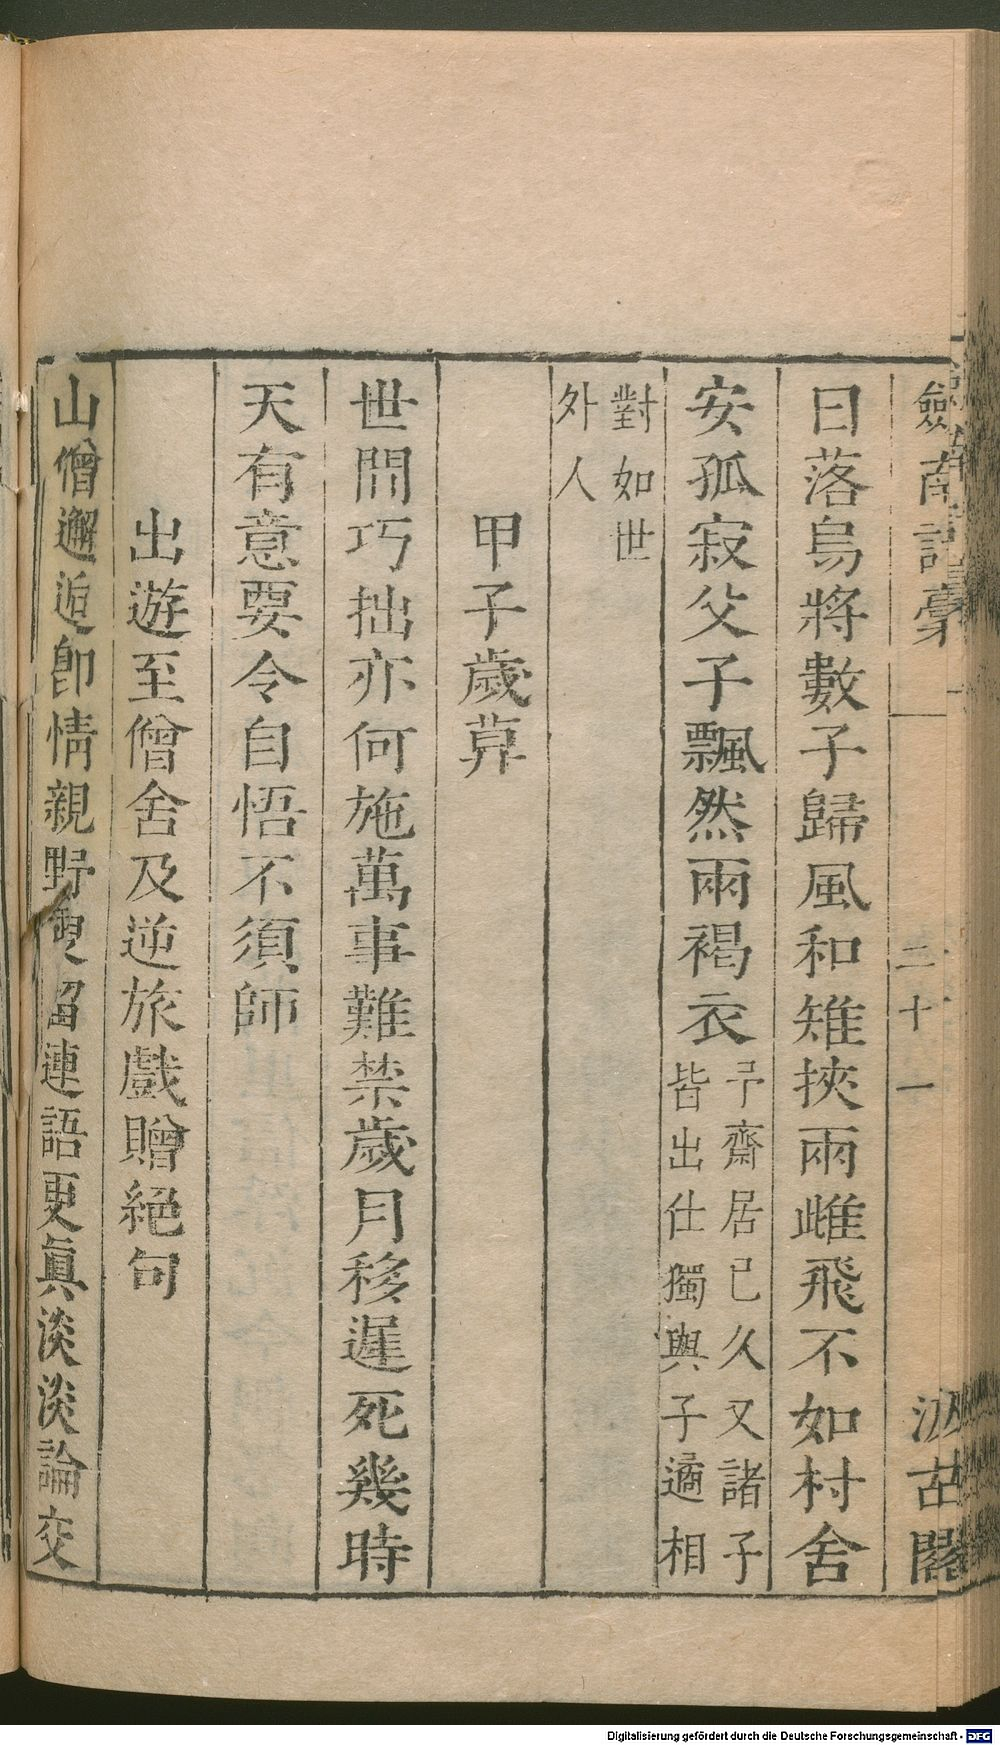 劒南詩稾
二十一
汲古閣
日落烏將數子歸風和雉挾兩雌飛不如村舍
安孤寂父子飄然兩褐衣予齋居已久又諸子
皆出仕獨與子遹相
對如世
外人
甲子歲莫
世間巧拙亦何施萬事難禁歲月移遲死幾時
天有意要令自悟不須師
出遊至僧舍及逆旅戲贈絕句
山僧邂逅卽情親野叟留連語更眞淡淡論交
Digitalisierung gefördert durch die Deutsche Forschungsgemeinschaft - DFG